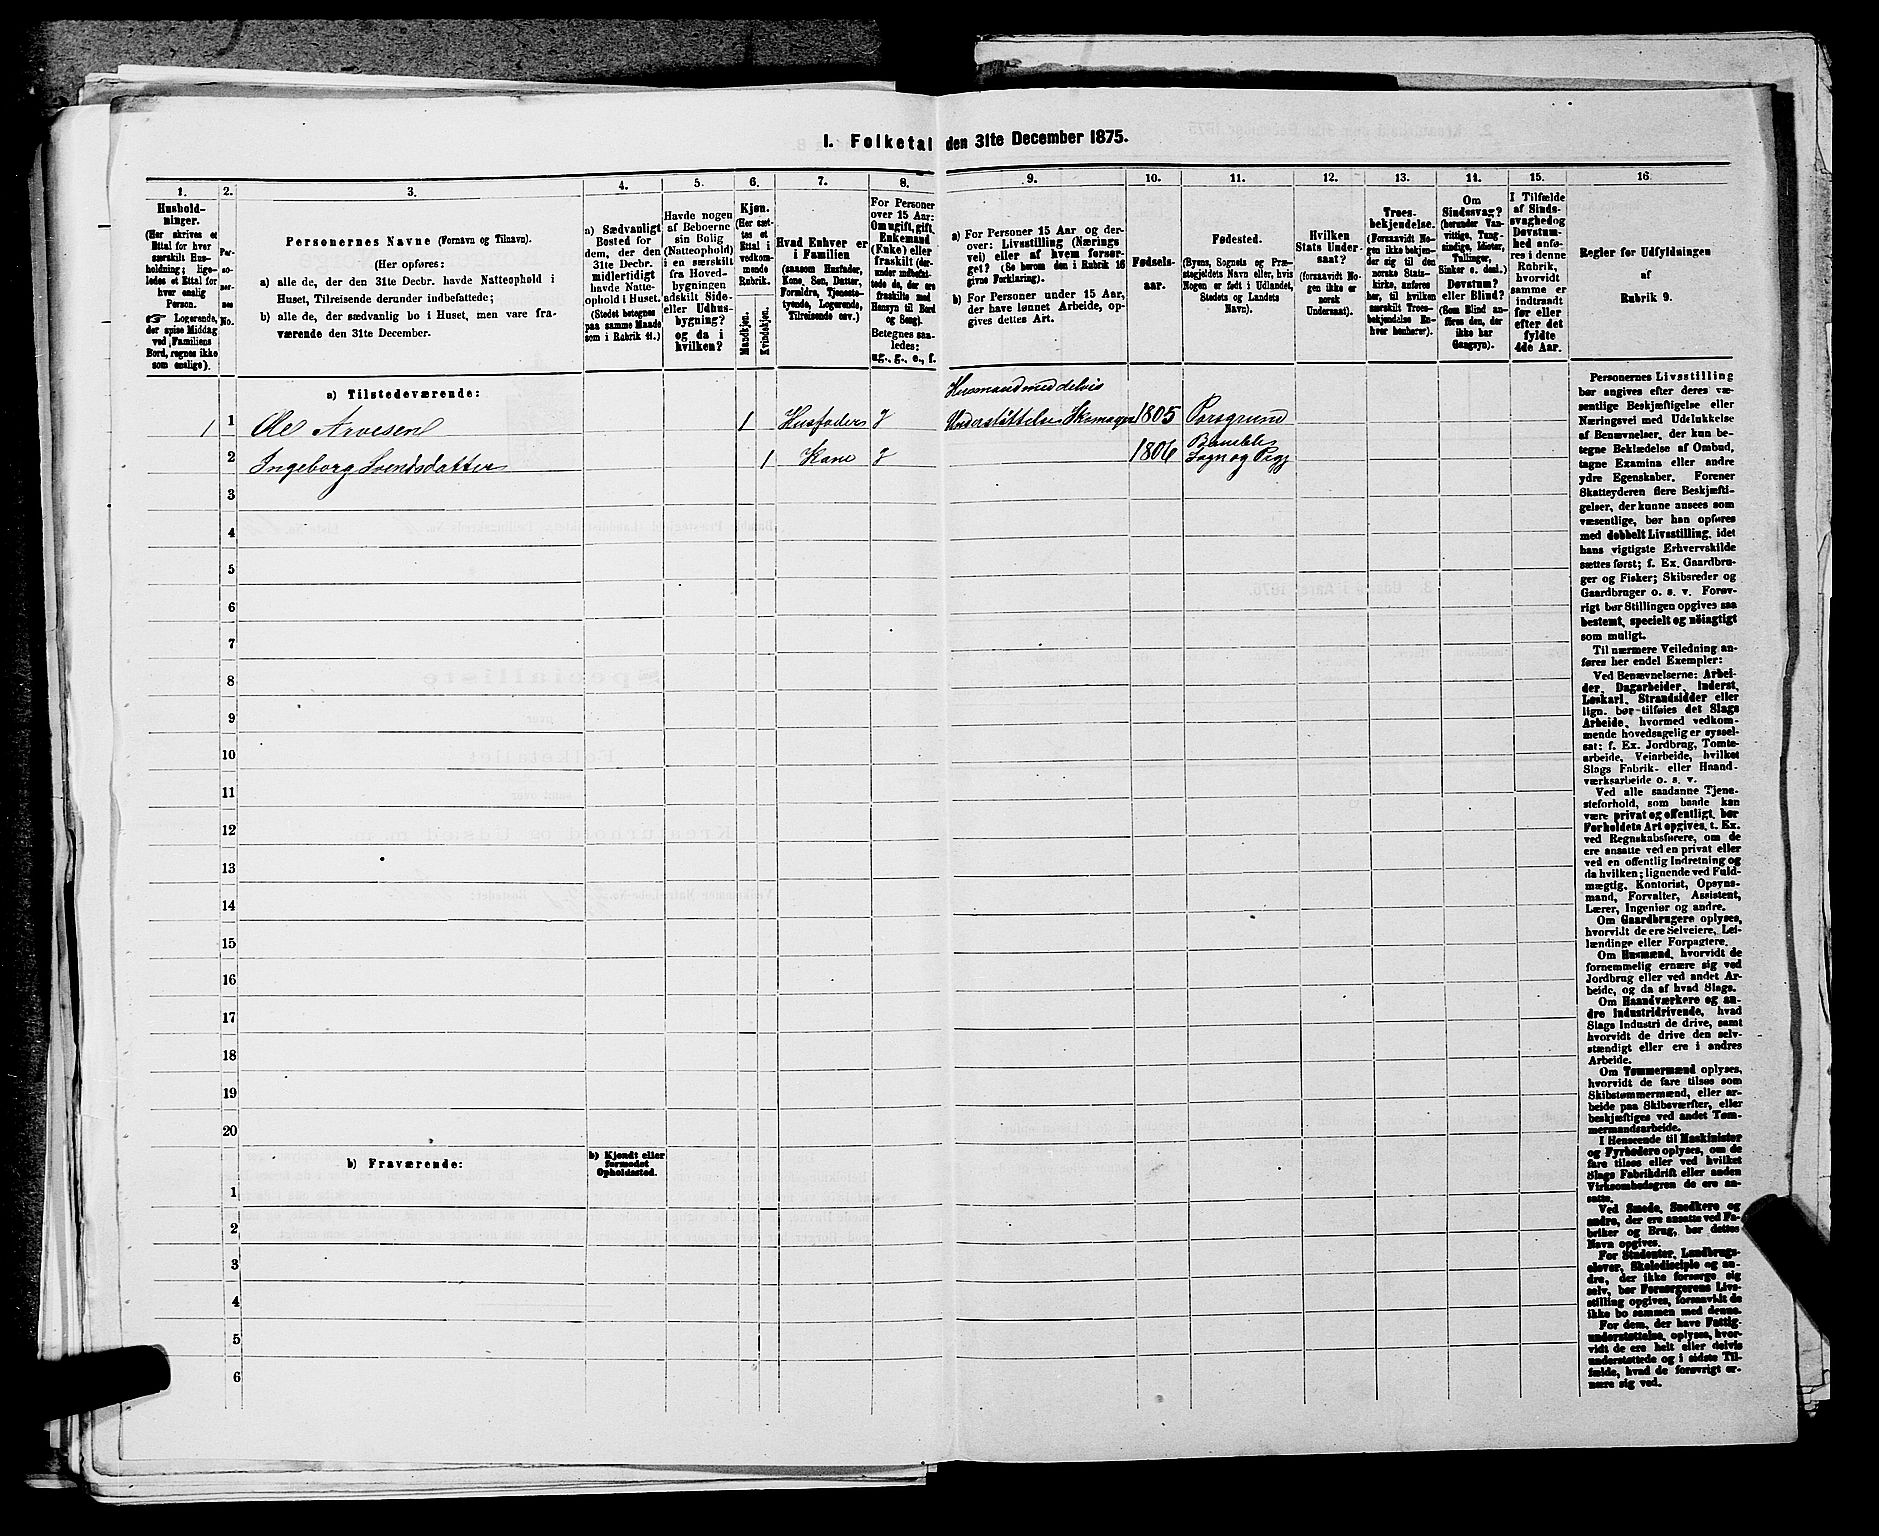 I. Folketal den 31te December 1875.
1. 2. 3. 4. 5. 6. 7. 8. 9. 10. 11. 12. 13. 14. 15. 16
Hushold-
ninger.
(Her skrives et
Ettal for hver
særskilt Hus-
holdning; lige-
ledes et Ettal for
hver enslig
Person.
☞ Logerende,
der spise Middag
ved Familiens
Bord, regnes ikke
som enslige).
Per-
so-
ner-
nes
No.
Personernes Navne (Fornavn og Tilnavn).
(Her opføres:
a) alle de, der den 31te Decbr. havde Natteophold i
Huset, Tilreisende derunder indbefattede;
b) alle de, der sædvanlig bo i Huset, men vare fra-
værende den 31te December.
a) Sædvanligt
Bosted for
dem, der den
31te Decbr.
midlertidigt
havde Natte-
ophold i Huset.
(Stedet betegnes
paa samme Maade
som i Rubrik 11.)
Havde nogen
af Beboerne
sin Bolig
(Natteophold)
i en særskilt
fra Hoved-
bygningen
adskilt Side-
eller Udhus-
bygning?
og da i
hvilken?
Kjøn.
(Her sæt-
tes et
Ettal i
vedkom-
mende
Rubrik.
Mandkjøn.
Kvindekjøn.
Hvad Enhver er
i Familien
(saasom Husfader,
Kone, Søn, Datter,
Forældre, Tjeneste-
tyende, Logerende,
Tilreisende osv.)
For Personer
over 15 Aar:
Om ugift, gift,
Enkemand
(Enke) eller
fraskilt (der-
under indbefat-
tede de, der ere
fraskilte med
Hensyn til Bord
og Seng).
Betegnes saa-
ledes:
ug., g., e., f.
a) For Personer 15 Aar og der-
over: Livsstilling (Nærings
vei) eller af hvem forsør-
get? (Se herom den i Rubrik 16
givne Forklaring).
b) For Personer under 15 Aar,
der have lønnet Arbeide, op-
gives dettes Art.
Fødsels-
aar.
Fødested.
(Byens, Sognets og Præ-
stegjeldets Navn eller, hvis
Nogen er født i Udlandet,
Stedets og Landets
Navn).
Hvilken
Stats Under-
saat?
(forsaavidt No-
gen ikke er
norsk
Undersaat).
Troes-
bekjendelse.
(Forsaavidt No-
gen ikke bekjen-
der sig til den
norske Stats-
kirke, anføres
her, til hvilken
særskilt Troes-
bekjendelse En-
hver henhører).
Om
Sindssvag?
(herunder Van-
vittige, Tung-
sindige, Idioter,
Tullinger,
Sinker o. desl.)
Døvstum?
eller Blind?
(Som Blind an-
føres den, der
ikke har
Gangsyn).
I Tilfælde
af Sinds-
svaghed og
Døvstum-
hed anfø-
res i denne
Rubrik,
hvorvidt
samme er
indtraadt
før eller
efter det
fyldte
4de Aar.
Regler for Udfyldningen
af
Rubrik 9.
a) Tilstedeværende:
Husmand med delvis
1 1 Ole Arvesen 1 Husfader g Understøttelse Skomager 1805 Porsgrund
Bamble
2 Ingeborg Svendsdatter 1 Kone g 1806 Sogn og Prgj
3
4
5
6
7
8
9
10
11
12
13
14
15
16
17
18
19
20
b) Fraværende:
b) Kjendt eller
formodet
Opholdssted.
1
2
3
4
5
6
Personernes Livsstilling
bør angives efter deres væ-
sentlige Beskjæftigelse eller
Næringsvei med Udelukkelse
af Benævnelser, der kun be-
tegne Beklædelse af Ombud,
tagne Examina eller andre
ydre Egenskaber. Forener
Skatteyderen flere Beskjæfti-
gelser, der kunne ansees som
væsentlige, bør han opføres
med dobbelt Livsstilling, idet
hans vigtigste Erhvervskilde
sættes først; f. Ex. Gaardbru-
ger og Fisker; Skibsreder og
Gaardbruger o. s. v. Forøv-
rigt bør Stillingen opgives saa
bestemt, specielt og nöiagtigt
som muligt.
Til nærmere Veiledning an-
føres her endel Exempler:
Ved Benævnelserne: Arbei-
der, Dagarbeider, Inderst,
Løskarl, Strandsidder eller
lign. bør tilføies det Slags
Arbeide, hvormed vedkom-
mende hovedsagelig er syssel-
sat: f. Ex. Jordbrug, Tomte-
arbeide, Veiarbeide, hvilket
Slags Fabrik- eller Haand-
værksarbeide o. s. v.
Ved alle saadanne Tjene-
steforhold, som baade kan
være privat og offentligt, bør
Forholdets Art opgives, t. Ex.
ved Regnskabsførere, om de
ere ansatte ved en privat eller
ved en offentlig Indretning og
da hvilken; lignende ved Fuld-
mægtig, Kontorist, Opsyns-
mand, Forvalter, Assistent,
Lærer, Ingeniør og andre.
Om Gaardbrugere oplyses,
hvorvidt de ere Selveiere, Lei-
lændinge eller Forpagtere.
Om Husmænd, hvorvidt de
fornemmelig ernære sig ved
Jordbrug eller ved andet Ar-
beide, og da af hvad Slags.
Om Haandværkere og an-
dre Industridrivende, hvad
Slags Industri de drive, samt
hvorvidt de drive den selv-
stændigt eller ere i andres
Arbeide.
Om Tømmermænd oplyses,
hvorvidt de fare tilsøs som
Skibstømmermænd, eller ar-
beide paa Skibsværfter, eller
beskjæftiges ved andet Tøm-
mermandsarbeide.
I Henseende til Maskinister
og Fyrbødere oplyses, om de
fare tilsøs eller ved hvilket
Slags Fabrikdrift eller anden
Virksomhedsgren de ere an-
satte.
Ved Smede, Snedkere og
andre, der ere ansatte ved Fa-
briker og Brug, bør dettes
Navn opgives.
For Studenter, Landbrugs-
elever, Skoledisciple og an-
dre, der ikke forsørge sig
selv, bør Forsørgerens Livs-
stilling opgives, forsaavidt de
ikke bo sammen med denne.
For dem, der have Fattig-
understøttelse, oplyses, hvor-
vidt de ere helt eller delvis
understøttede og i sidste Til-
fælde, hvad de forøvrigt er-
nære sig ved.